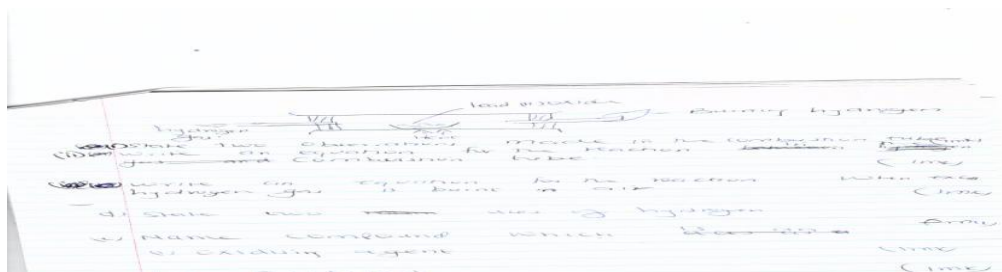 lead (II) oxide
Burning hydrogen
hydrogen gas
heat
State two observations made in the combustion tube
(ii) write an equation for the reaction
combustion tube (1mk)
write an equation for the reaction when
hydrogen gas is burnt in air (1mk)
d) State two uses of hydrogen
e) Name compound which
oxidising agent (1mk)
(1mk)